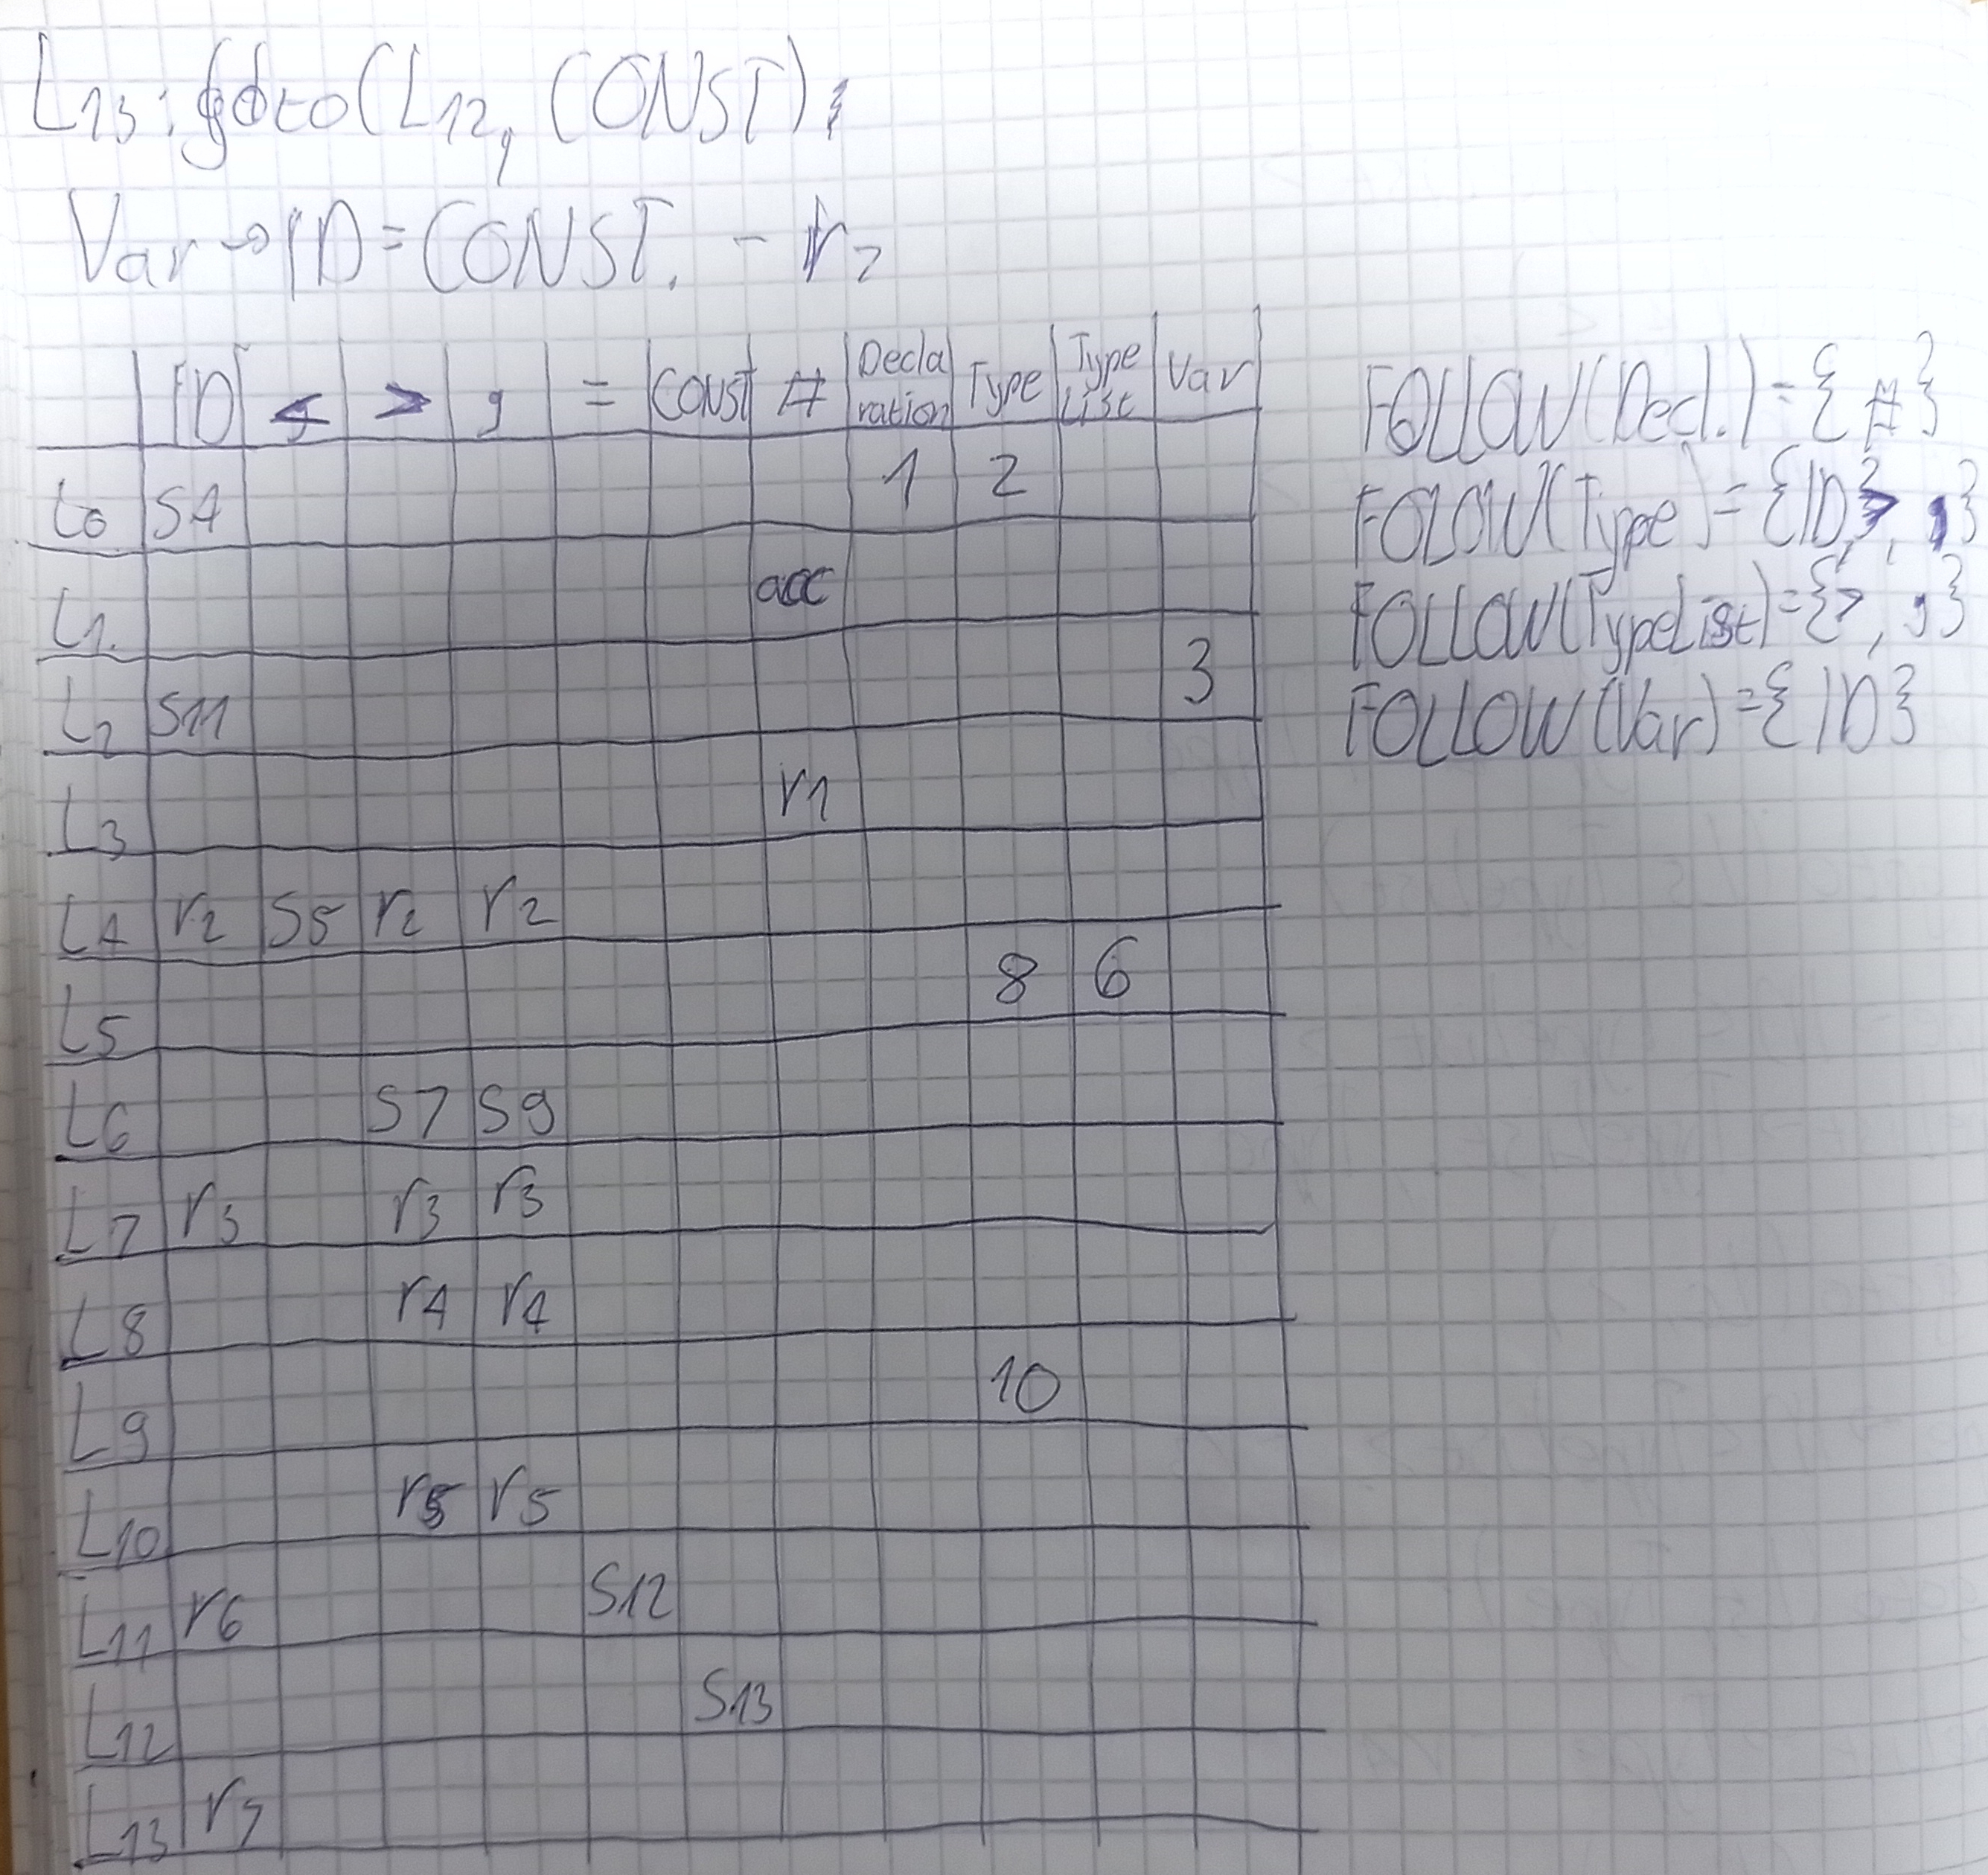 L13: goto(L12, CONST):
Var → ID = CONST. - r7
ID < > , = CONST # Decla ration Type Type List Var
L0 S4 1 2
L1 acc
L2 S11 3
L3 r1
L4 r2 S5 r2 r2
L5 8 6
L6 S7 S9
L7 r3 r3 r3
L8 r4 r4
L9 10
L10 r5 r5
L11 r6 S12
L12 S13
L13 r7
FOLLOW(Decl.) = { # }
FOLOW(Type) = {ID, >, ,}
FOLLOW(TypeList) = {>, ,}
FOLLOW(Var) = {ID}